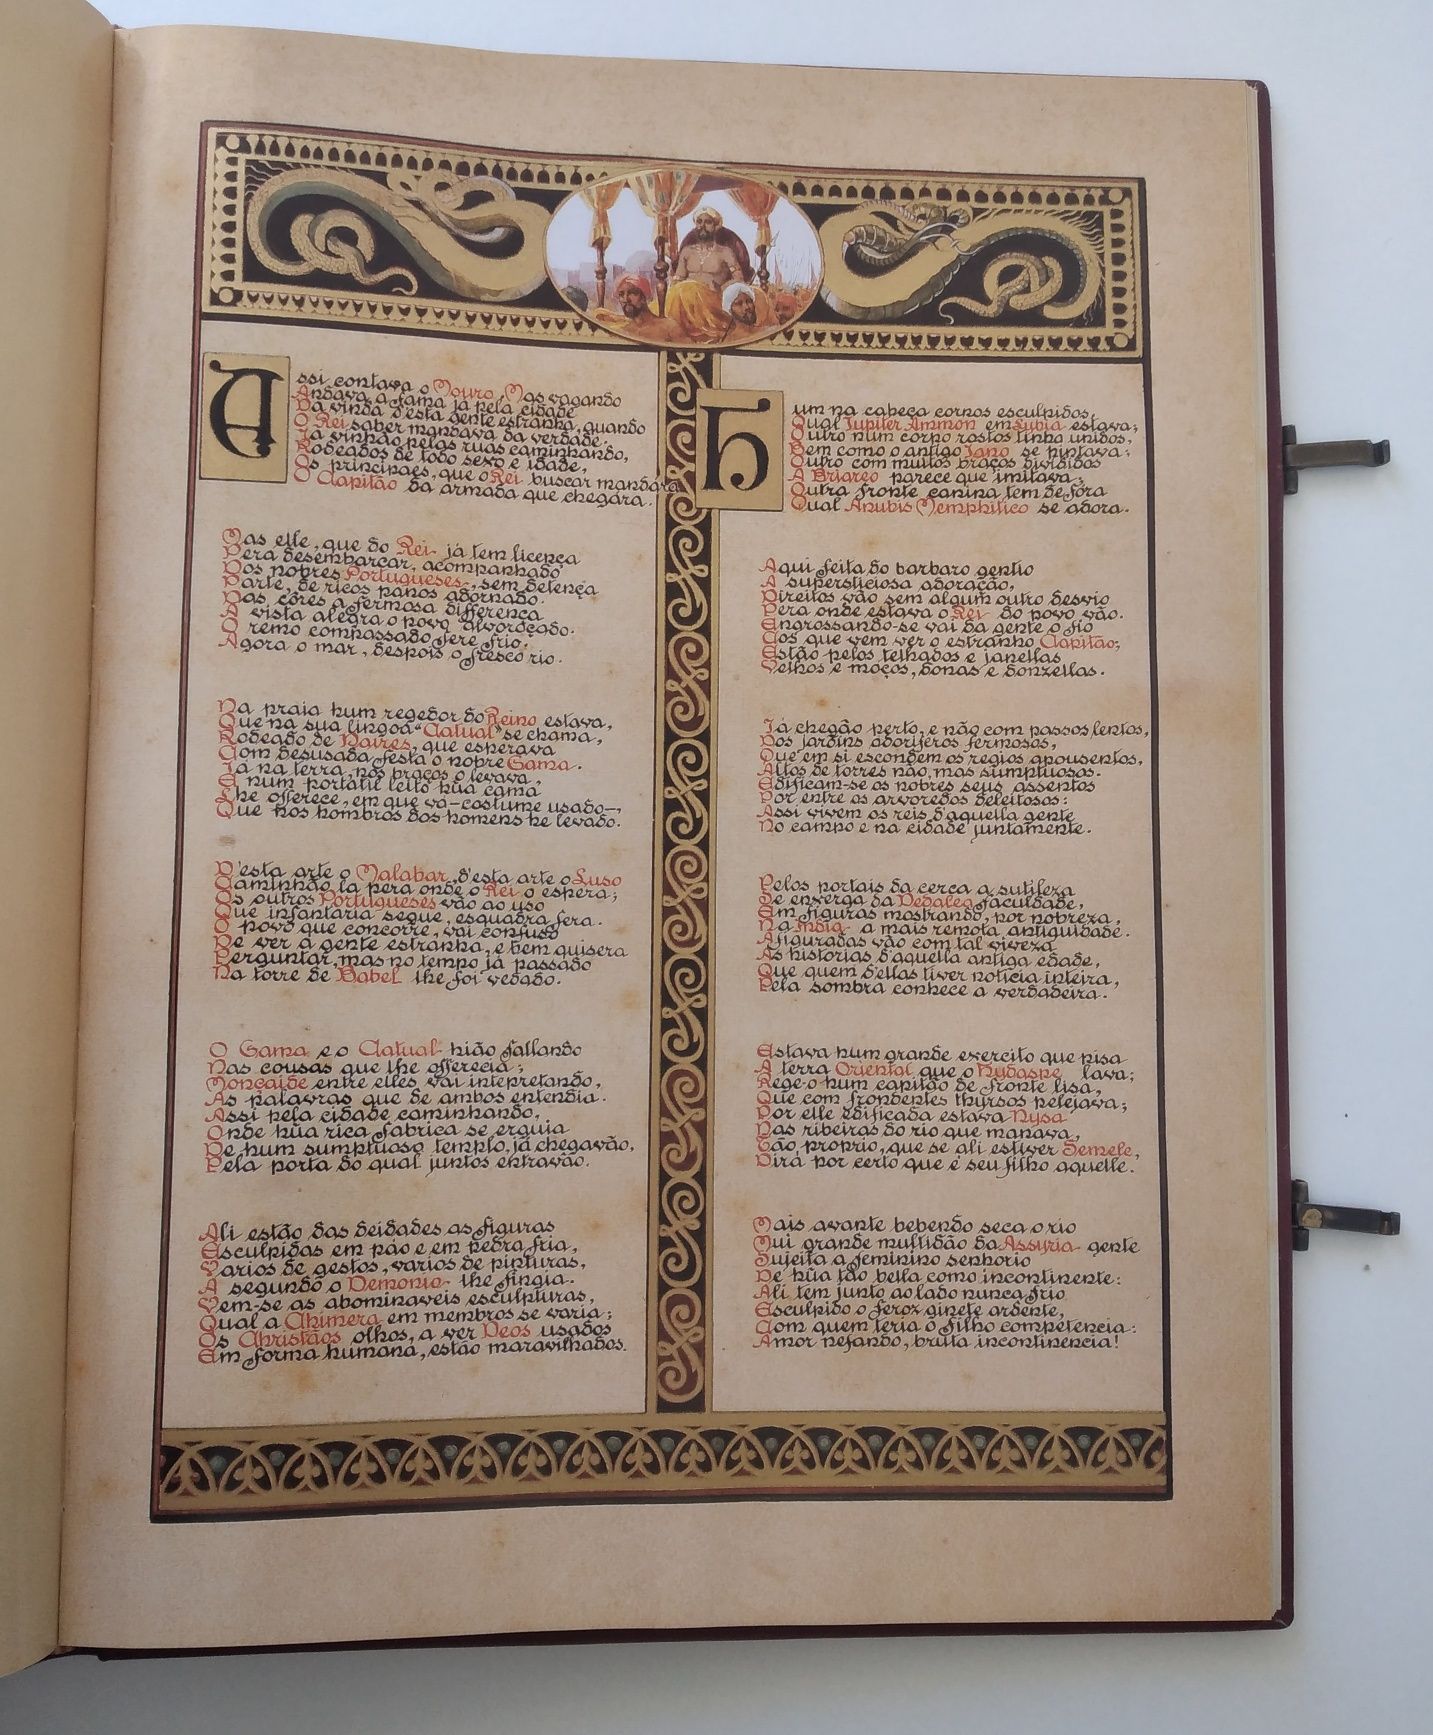 Assi contava o Mouro, Mas vagando
Andava a fama já pela cidade
Da vinda d'esta gente estranha, quando
O Rei saber mandava da verdade.
Já vinhão pelas ruas caminhando,
Rodeados de todo sexo e idade,
Os principaes, que o Rei buscar mandára
O Capitão da armada que chegára.
Mas elle, que do Rei já tem licença
Pera desembarcar, acompanhado
Dos nobres Portugueses, sem detença
Parte, de ricos panos adornado.
Das côres a fermosa differença
A vista alegra o povo alvoroçado.
O remo compassado fere frio
Agora o mar, despois o fresco rio.
Na praia hum regedor do Reino estava,
Que na sua lingoa "Catual" se chama,
Rodeado de Naires, que esperava
Com desusada festa o nobre Gama.
Já na terra, nos braços o levava,
E num portatil leito hũa cama
Lhe offerece, em que vá—costume usado—,
Que nos hombros dos homens he levado.
D'esta arte o Malabar, d'esta arte o Luso
Caminhão lá pera onde o Rei o espera;
Os outros Portugueses vão ao uso
Que infantaria segue, esquadra fera.
O povo que concorre, vai confuso
De ver a gente estranha, e bem quisera
Perguntar, mas no tempo já passado
Na torre de Babel lhe foi vedado.
O Gama e o Catual hião fallando
Nas cousas que lhe offerecia;
Monçaide entre elles vai intepretando,
As palavras que de ambos entendia.
Assi pela cidade caminhando,
Onde hũa rica fabrica se erguia
De hum sumptuoso templo, já chegavão,
Pela porta do qual juntos entravão.
Ali estão das deidades as figuras
Esculpidas em páo e em pedra fria,
Varios de gestos, varios de pinturas,
A segundo o Demonio lhe fingia.
Vem-se as abominaveis esculpturas,
Qual a Chimera em membros se varia;
Os Christãos olhos, a ver Deos usados
Em forma humana, estão maravilhados.
Hum na cabeça cornos esculpidos,
Qual Jupiter Ammon em Lybia estava;
Outro num corpo rostos tinha unidos,
Bem como o antigo Jano se pintava;
Outro com muitos braços divididos
A Briareo parece que imitava;
Outra fronte canina tem de fóra
Qual Anubis Memphitico se adora.
Aqui feita do barbaro gentio
A supersticiosa adoração,
Direitos vão sem algum outro desvio
Pera onde estava o Rei do povo vão.
Engrossando-se vai da gente o fio
Cos que vem ver o estranho Capitão;
Estão pelos telhados e janellas
Velhos e moços, donas e donzellas.
Já chegão perto, e não com passos lentos,
Dos jardins odoriferos fermosos,
Que em si escondem os regios apousentos,
Altos de torres não, mas sumptuosos.
Edificam-se os nobres seus assentos
Por entre os arvoredos deleitosos:
Assi vivem os reis d'aquella gente
No campo e na cidade juntamente.
Pelos portais da cerca a sutileza
Se enxerga da Dedalea faculdade,
Em figuras mostrando, por nobreza,
Na India a mais remota antiguidade.
Afiguradas vão com tal viveza
As historias d'aquella antiga edade,
Que quem d'ellas tiver noticia inteira,
Pela sombra conhece a verdadeira.
Estava hum grande exercito que pisa
A terra Oriental que o Hydaspe lava;
Rege-o hum capitão de fronte lisa,
Que com frondentes thyrsos pelejava;
Por elle edificada estava Nysa
Nas ribeiras do rio que manava,
Tão proprio, que se ali estiver Semele,
Dirá por certo que é seu filho aquelle.
Mais avante bebendo seca o rio
Mui grande multidão da Assyria gente
Sujeita a feminino senhorio
De hũa tão bella como incontinente:
Ali tem junto ao lado nunca frio
Esculpido o feroz ginete ardente,
Com quem teria o filho competencia:
Amor nefando, bruta incontinencia!